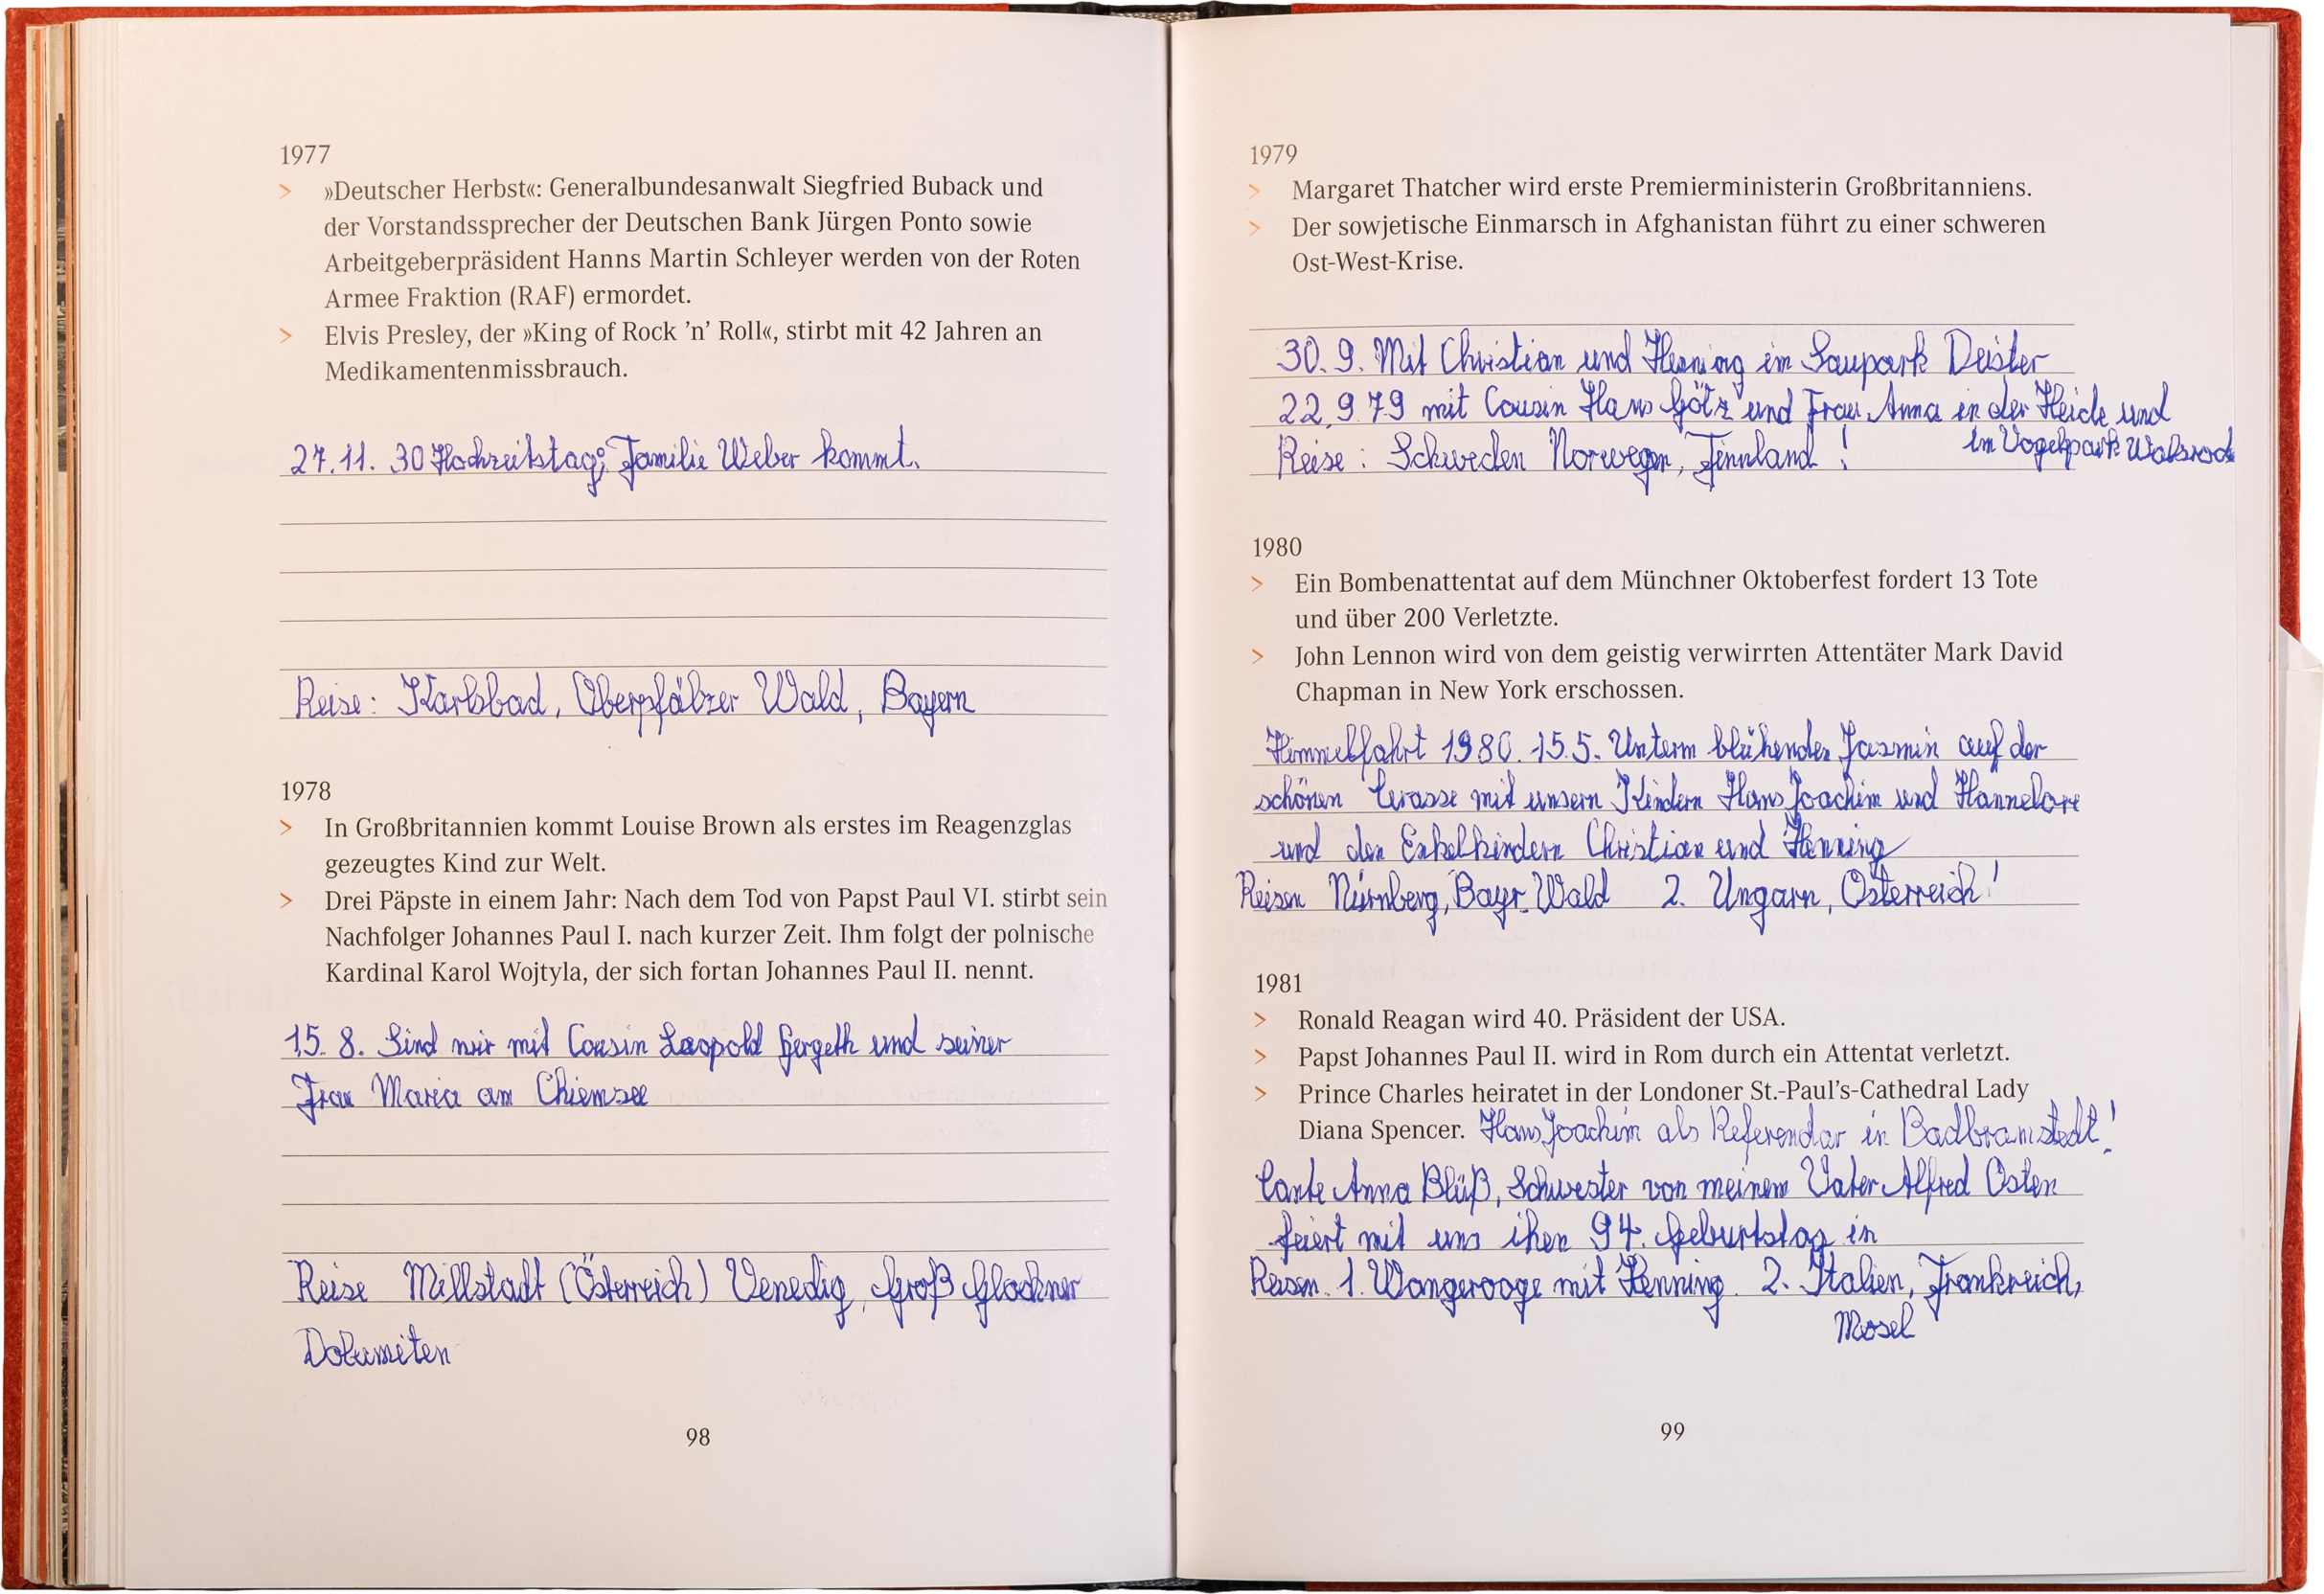 1977
> »Deutscher Herbst«: Generalbundesanwalt Siegfried Buback und
der Vorstandssprecher der Deutschen Bank Jürgen Ponto sowie
Arbeitgeberpräsident Hanns Martin Schleyer werden von der Roten
Armee Fraktion (RAF) ermordet.
> Elvis Presley, der »King of Rock ’n’ Roll«, stirbt mit 42 Jahren an
Medikamentenmissbrauch.
27.11. 30 Hochzeitstag; Familie Weber kommt.
Reise: Karlsbad, Oberpfälzer Wald, Bayern
1978
> In Großbritannien kommt Louise Brown als erstes im Reagenzglas
gezeugtes Kind zur Welt.
> Drei Päpste in einem Jahr: Nach dem Tod von Papst Paul VI. stirbt sein
Nachfolger Johannes Paul I. nach kurzer Zeit. Ihm folgt der polnische
Kardinal Karol Wojtyla, der sich fortan Johannes Paul II. nennt.
15. 8. Sind wir mit Cousin Leopold Gergeth und seiner
Frau Maria am Chiemsee
Reise Millstadt (Österreich) Venedig, Groß Glockner
Dolumiten
98
1979
> Margaret Thatcher wird erste Premierministerin Großbritanniens.
> Der sowjetische Einmarsch in Afghanistan führt zu einer schweren
Ost-West-Krise.
30. 9. Mit Christian und Henning im Saupark Deister
22.9.79 mit Cousin Hans Götz und Frau Anna in der Heide und
im Vogelpark Walsrode
Reise: Schweden Norwegen, Finnland!
1980
> Ein Bombenattentat auf dem Münchner Oktoberfest fordert 13 Tote
und über 200 Verletzte.
> John Lennon wird von dem geistig verwirrten Attentäter Mark David
Chapman in New York erschossen.
Himmelfahrt 1980. 15.5. Unterm blühenden Jasmin auf der
schönen Terasse mit unsern Kindern Hans Joachim und Hannelore
und den Enkelkindern Christian und Henning
Reisen Nürnberg, Bayr. Wald 2. Ungarn, Österreich!
1981
> Ronald Reagan wird 40. Präsident der USA.
> Papst Johannes Paul II. wird in Rom durch ein Attentat verletzt.
> Prince Charles heiratet in der Londoner St.-Paul’s-Cathedral Lady
Diana Spencer. Hans Joachim als Referendar in Badbramstedt!
Tante Anna Blüß, Schwester von meinem Vater Alfred Osten
feiert mit uns ihen 94. Geburtstag in
Reisen. 1. Wangerooge mit Henning. 2. Italien, Frankreich,
Mosel
99